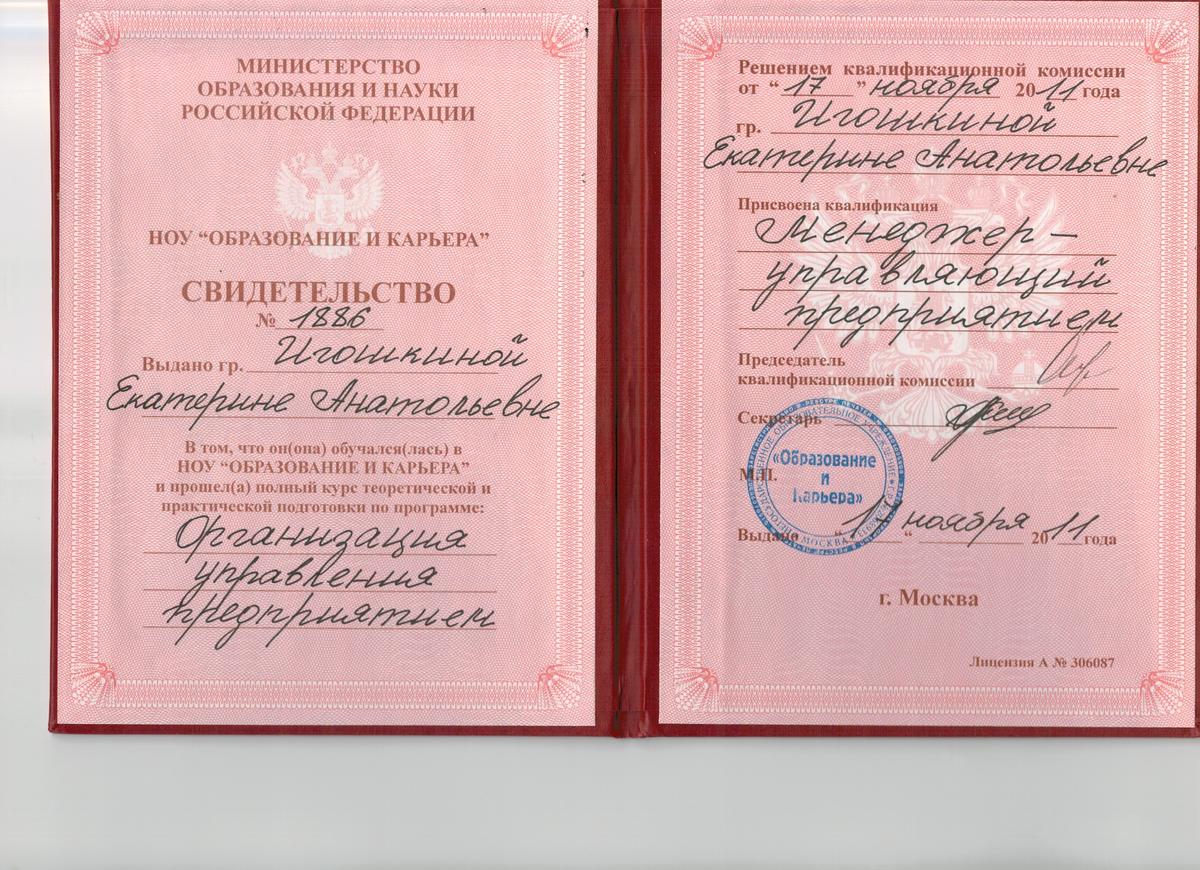 МИНИСТЕРСТВО
ОБРАЗОВАНИЯ И НАУКИ
РОССИЙСКОЙ ФЕДЕРАЦИИ
НОУ “ОБРАЗОВАНИЕ И КАРЬЕРА”
СВИДЕТЕЛЬСТВО
№ 1886
Выдано гр. Игошкиной
Екатерине Анатольевне
В том, что он(она) обучался(лась) в
НОУ “ОБРАЗОВАНИЕ И КАРЬЕРА”
и прошел(а) полный курс теоретической и
практической подготовки по программе:
Организация
управления
предприятием
Решением квалификационной комиссии
от “17” ноября 2011 года
гр. Игошкиной
Екатерине Анатольевне
Присвоена квалификация
Менеджер-
управляющий
предприятием
Председатель
квалификационной комиссии
Секретарь
М.П.
«Образование
и
Карьера»
МОСКВА
Выдано ноября 2011 года
г. Москва
Лицензия А № 306087